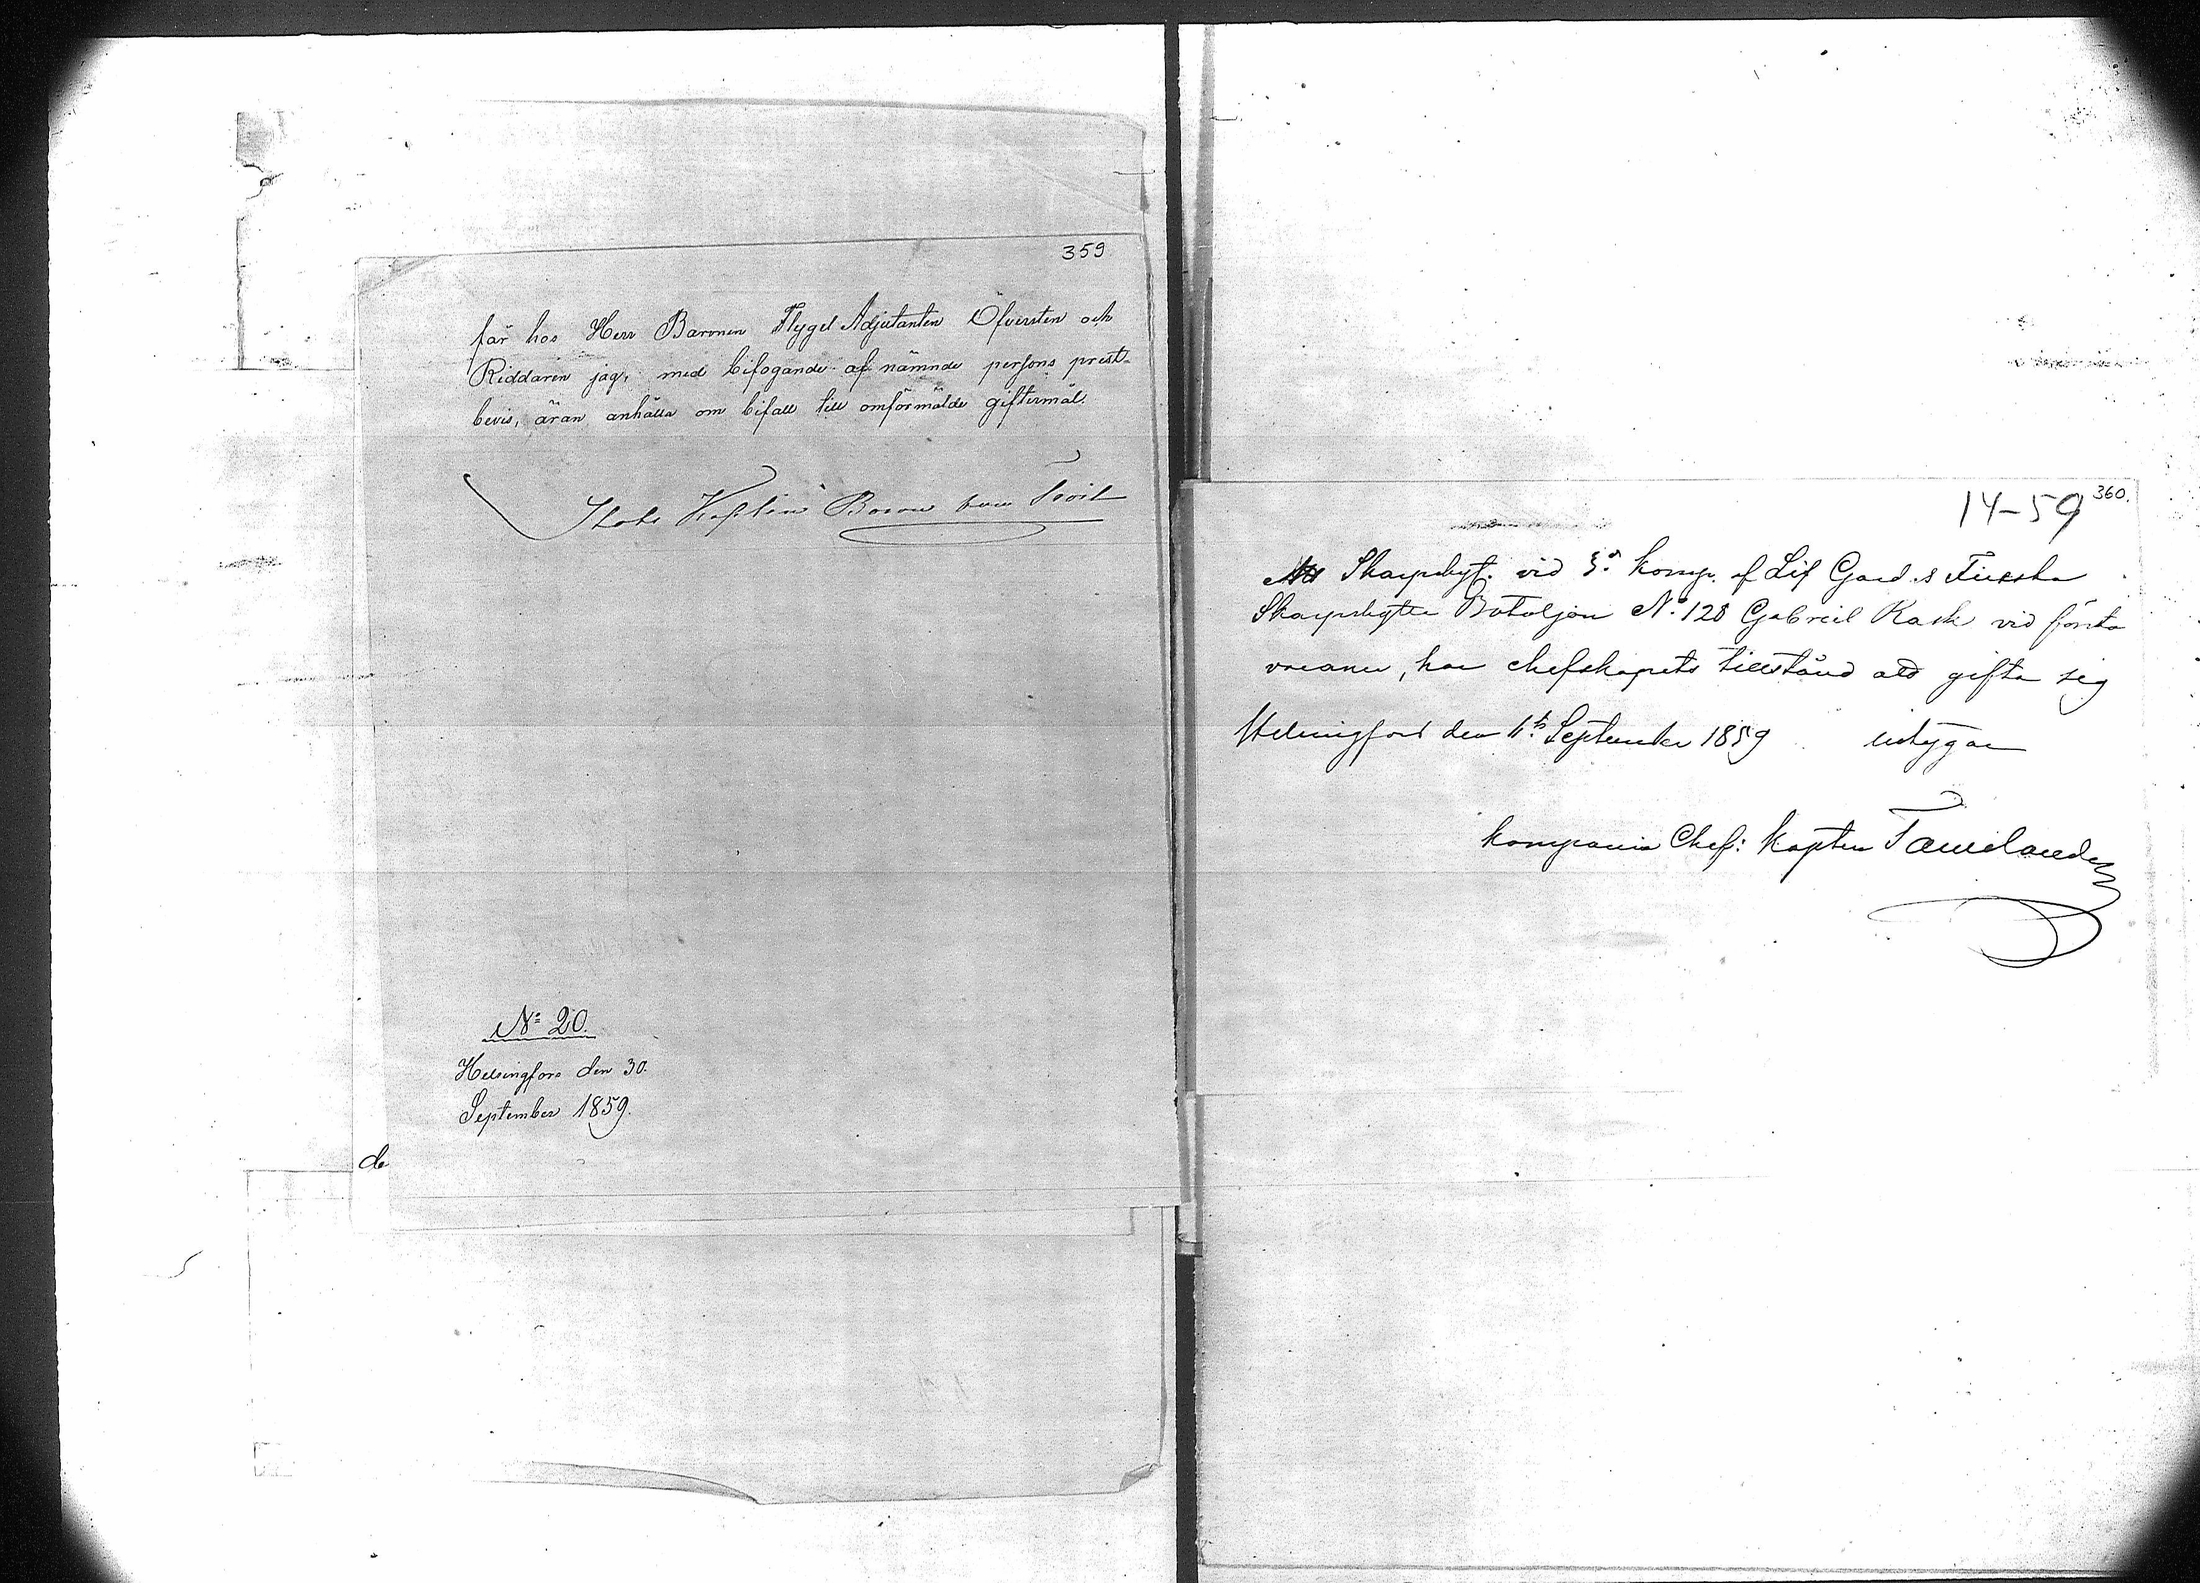 359
får hos Herr Baronen Flygel Adjutanten Öfversten och
Riddaren jag, med bifogande af nämnde persons prest-
bevis, äran anhålla om bifall till omförmälde giftermål.
Stabs Kapten Baron von Troil
No 20.
Helsingfors den 30.
September 1859.
de
360.
14-59
Att Skarpskyt. vid komp. af Lif Gard.s Finska
Skarpskytte Bataljon No 128 Gabriel Rask vid första
, har chefskapets tillstånd att gifta sig
Helsingfors den September 1859 intygar
Kompanie Chef: Kapten